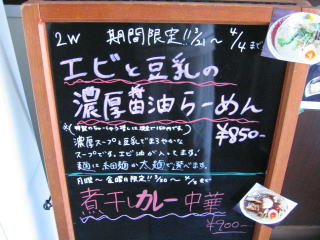 2W 期間限定!! 3/21〜4/4まで
エビと豆乳の
濃厚醤油らーめん
¥850-
濃厚スープと豆乳でまろやかな
スープです。エビ油が入ってます!
麺は細麺か太麺を選べます。
月曜〜金曜日限定!!
煮干しカレー中華
¥900-